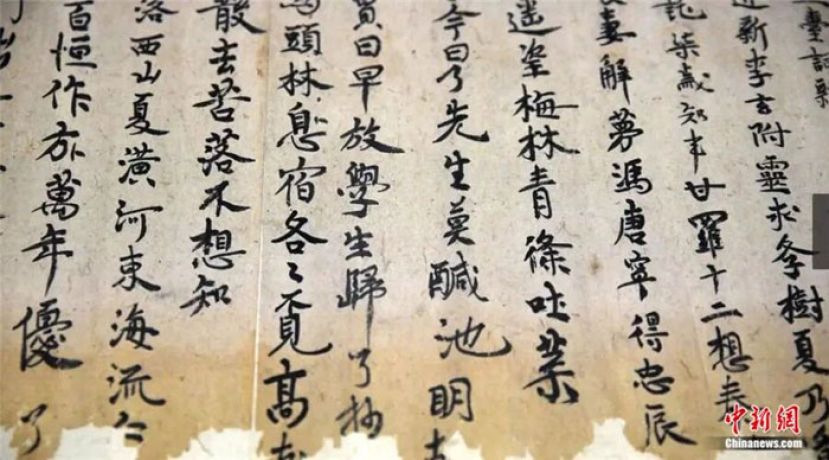 臺詞
新李玄附靈求學樹夏乃
託柒歲知事甘羅十二想秦
妻解夢馮唐寧得忠辰
遥望梅林青條吐葉
今日了先生莫醎池明
貫日早放學生歸了抄
頭林息宿各々覓高
散去苦落不想知
洛西山夏潢河東海流人
百恒作方萬年優
了
中新網
Chinanews.com